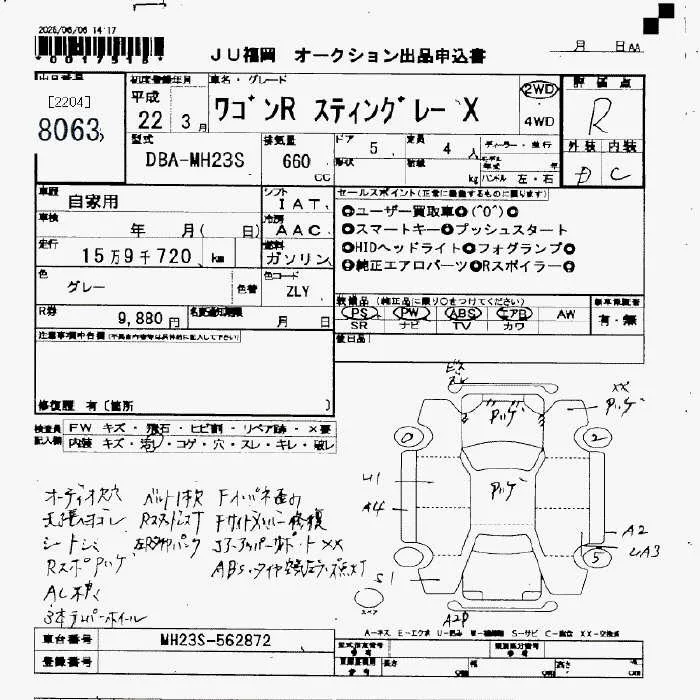 2025/06/06 14:17
*0017515*
JU福岡 オークション出品申込書
月 日
[2204]
8063
初度登録年月
平成
22 3月
車名・グレード
ワゴンR スティングレー X
2WD
4WD
評価点
R
外装 内装
D C
型式
DBA-MH23S
排気量
660
CC
ドア
5
定員
4 人
形状
積載
kg
ディーラー・並行
モデル年式 年
ハンドル 左・右
車歴
自家用
車検
年 月( 日)
走行
15万9千720 km
シフト
IAT
冷房
AAC
燃料
ガソリン
セールスポイント(正常に機動するものに限ります)
◎ユーザー買取車◎(^0^)◎
◎スマートキー◎プッシュスタート
◎HIDヘッドライト◎フォグランプ◎
◎純正エアロパーツ◎Rスポイラー◎
色
グレー
色替
色コード
ZLY
R券
9,880 円
名変通知期限
月 日
装備品(純正品に限り○をつけてください)
PS PW ABS エアB AW
SR ナビ TV カワ
新車保証書
有・無
後日品
修復歴 有〔箇所 〕
検査員記入欄
FW キズ・飛石・ヒビ割・リペア跡・×要
内装 キズ・汚レ・コゲ・穴・スレ・キレ・破レ
オーディオ欠穴 ベルト1本欠
天張ヨゴレ
シートシミ
ABS・タイヤ空気圧
3本テンパーホイール
U1
A4
S1
A2
UA3
A2P
XX
2
5
スペア
A-キズ E-エクボ U-凹み W-補修跡 S-サビ C-腐食 XX-交換済
車台番号
MH23S-562872
登録番号
型式指定番号
参考
類別区分番号
参考
長さ cm
幅 cm
高さ cm